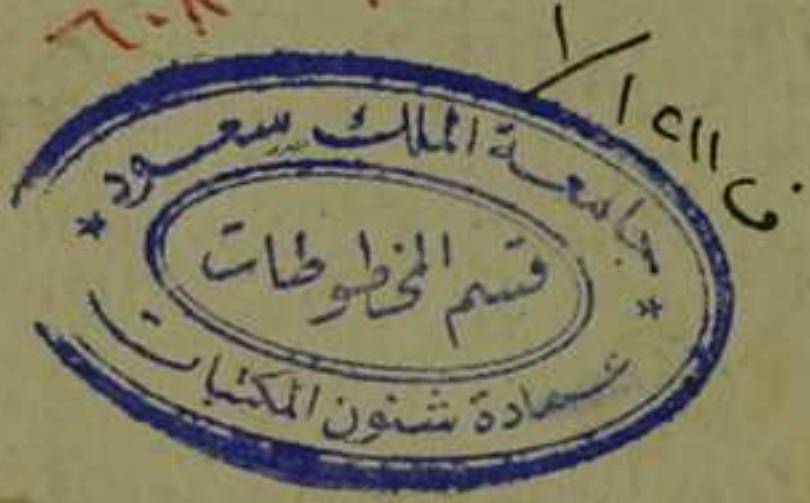 ف ١٢١١ / ١
جامعة الملك سعود
قسم المخطوطات
عمادة شئون المكتبات